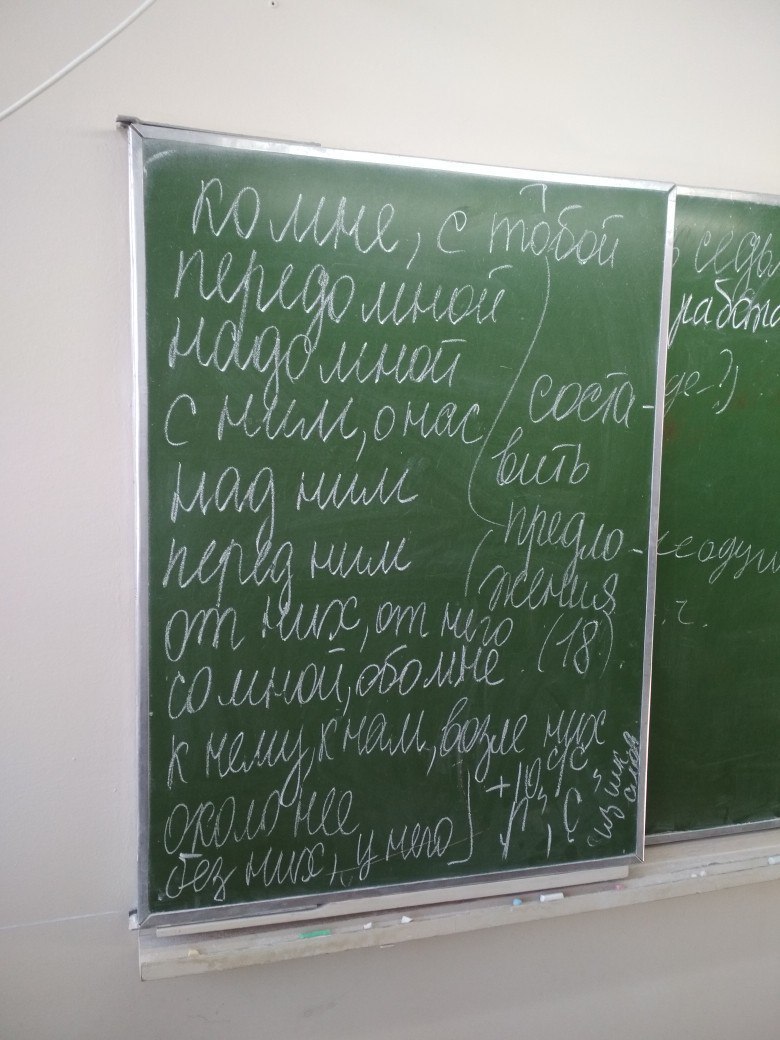 ко мне, с тобой
передо мной
надо мной
с ним, о нас
над ним
перед ним
от них, от него
со мной, обо мне
к нему, к нам, возле них
около нее
без них, у него
соста-
вить
предло-
жения
(18)
+10 с/с
из их
слов
работа